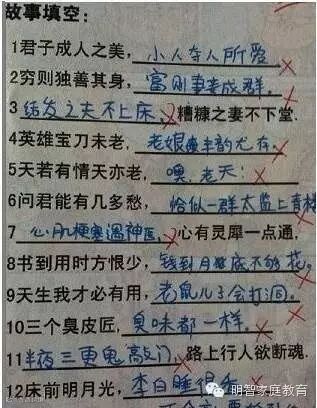 故事填空：
1君子成人之美，小人夺人所爱
2穷则独善其身，富则妻妾成群。
3结发之夫不上床，糟糠之妻不下堂.
4英雄宝刀未老，老娘风韵尤存。
5天若有情天亦老，噢，老天：
6问君能有几多愁，恰似一群太监上青楼
7心肌梗塞遇神医，心有灵犀一点通
8书到用时方恨少，钱到月底不够花。
9天生我才必有用，老鼠儿子会打洞。
10三个臭皮匠，臭味都一样。
11半夜三更鬼敲门，路上行人欲断魂.
12床前明月光，李白睡得
明智家庭教育